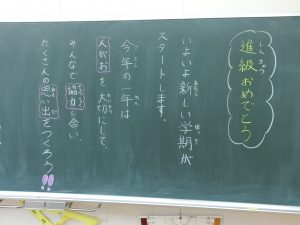 進級おめでとう
しんきゅう
いよいよ新しい学期が
スタートします。
今年の一年は
えがおを大切にして、
みんなで協力し合い、
たくさんの思い出をつくろう!!